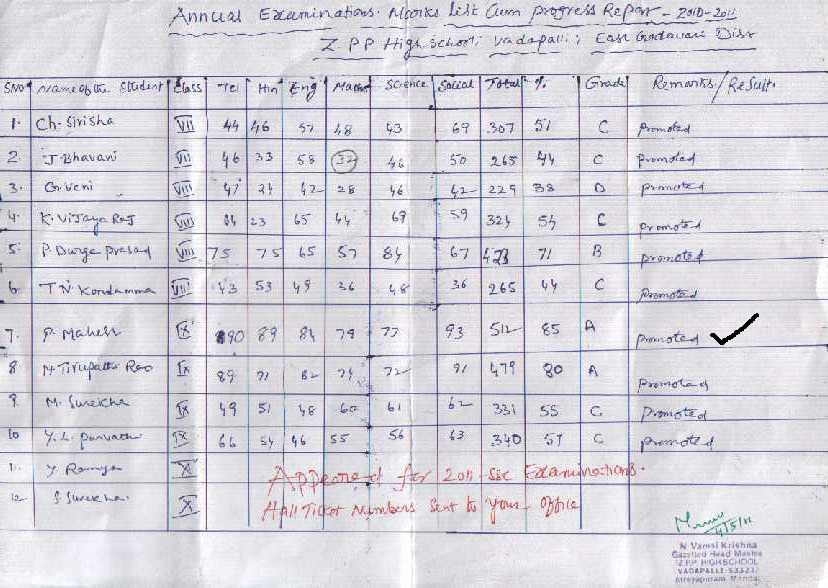 Annual Examinations. Marks List Cum Progress Report - 2010-2011
Z PP High school, Vadapalli, East Godavari Dist
SNo Name of the Student Class Tel Hin Eng Maths Science Social Total % Grade Remarks/Result.
1. Ch. Sirisha VII 44 46 57 48 43 69 307 51 C promoted
2 J. Bhavani VII 46 33 58 32 46 50 265 44 C promoted
3. G. Veni VIII 47 24 42 28 46 42 229 38 D promoted
4. K. Vijaya Raj VIII 64 23 65 44 69 59 324 54 C promoted
5. P. Durga prasad VIII 75 75 65 57 84 67 423 71 B promoted
6. T N Kondamma VIII 43 53 49 36 48 36 265 44 C Promoted
7. P. Mahesh IX 90 89 84 79 77 93 512 85 A promoted
8 N. Tirupathi Rao IX 89 71 82 74 72 91 479 80 A promoted
9 M. Surekha IX 49 51 48 60 61 62 331 55 C promoted
10 Y. L. parvathi IX 66 54 46 55 56 63 340 57 C promoted
11. Y Ramya X
Appeared for 2011-SSC Examinations.
12 S Surekha X
Hall Ticket Numbers Sent to Your Office
4/5/11
N Vamsi Krishna
Gazetted Head Master
Z P P HIGH SCHOOL
VADAPALLE-533237
Atreyapuram Mandal